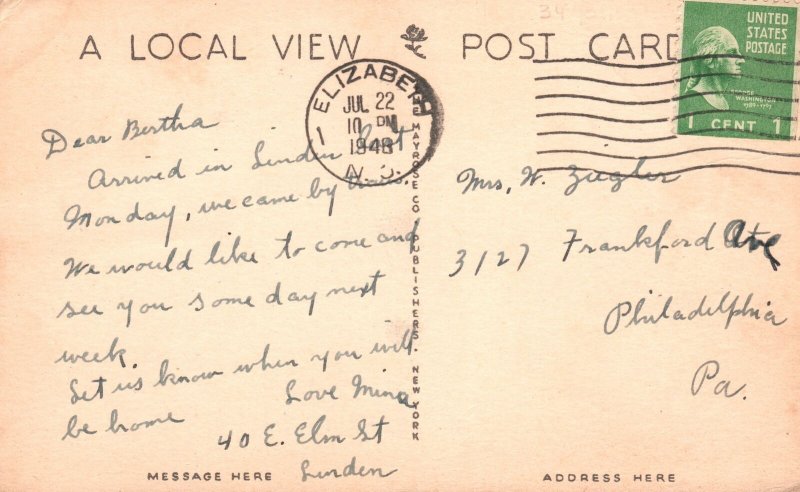 A LOCAL VIEW POST CARD
UNITED
STATES
POSTAGE
GEORGE
WASHINGTON
1789-1797
1 CENT 1
ELIZABETH
JUL 22
10 PM
1948
N. J.
1
Dear Bertha
Arrived in Linden last
Monday, we came by
We would like to come and
see you some day next
week.
Let us know when you will
be home
Love Mina
40 E. Elm St
Linden
Mrs. W. Ziegler
3127 Frankford Ave
Philadelphia
Pa.
THE MAYROSE CO. PUBLISHERS. NEW YORK
MESSAGE HERE
ADDRESS HERE
34